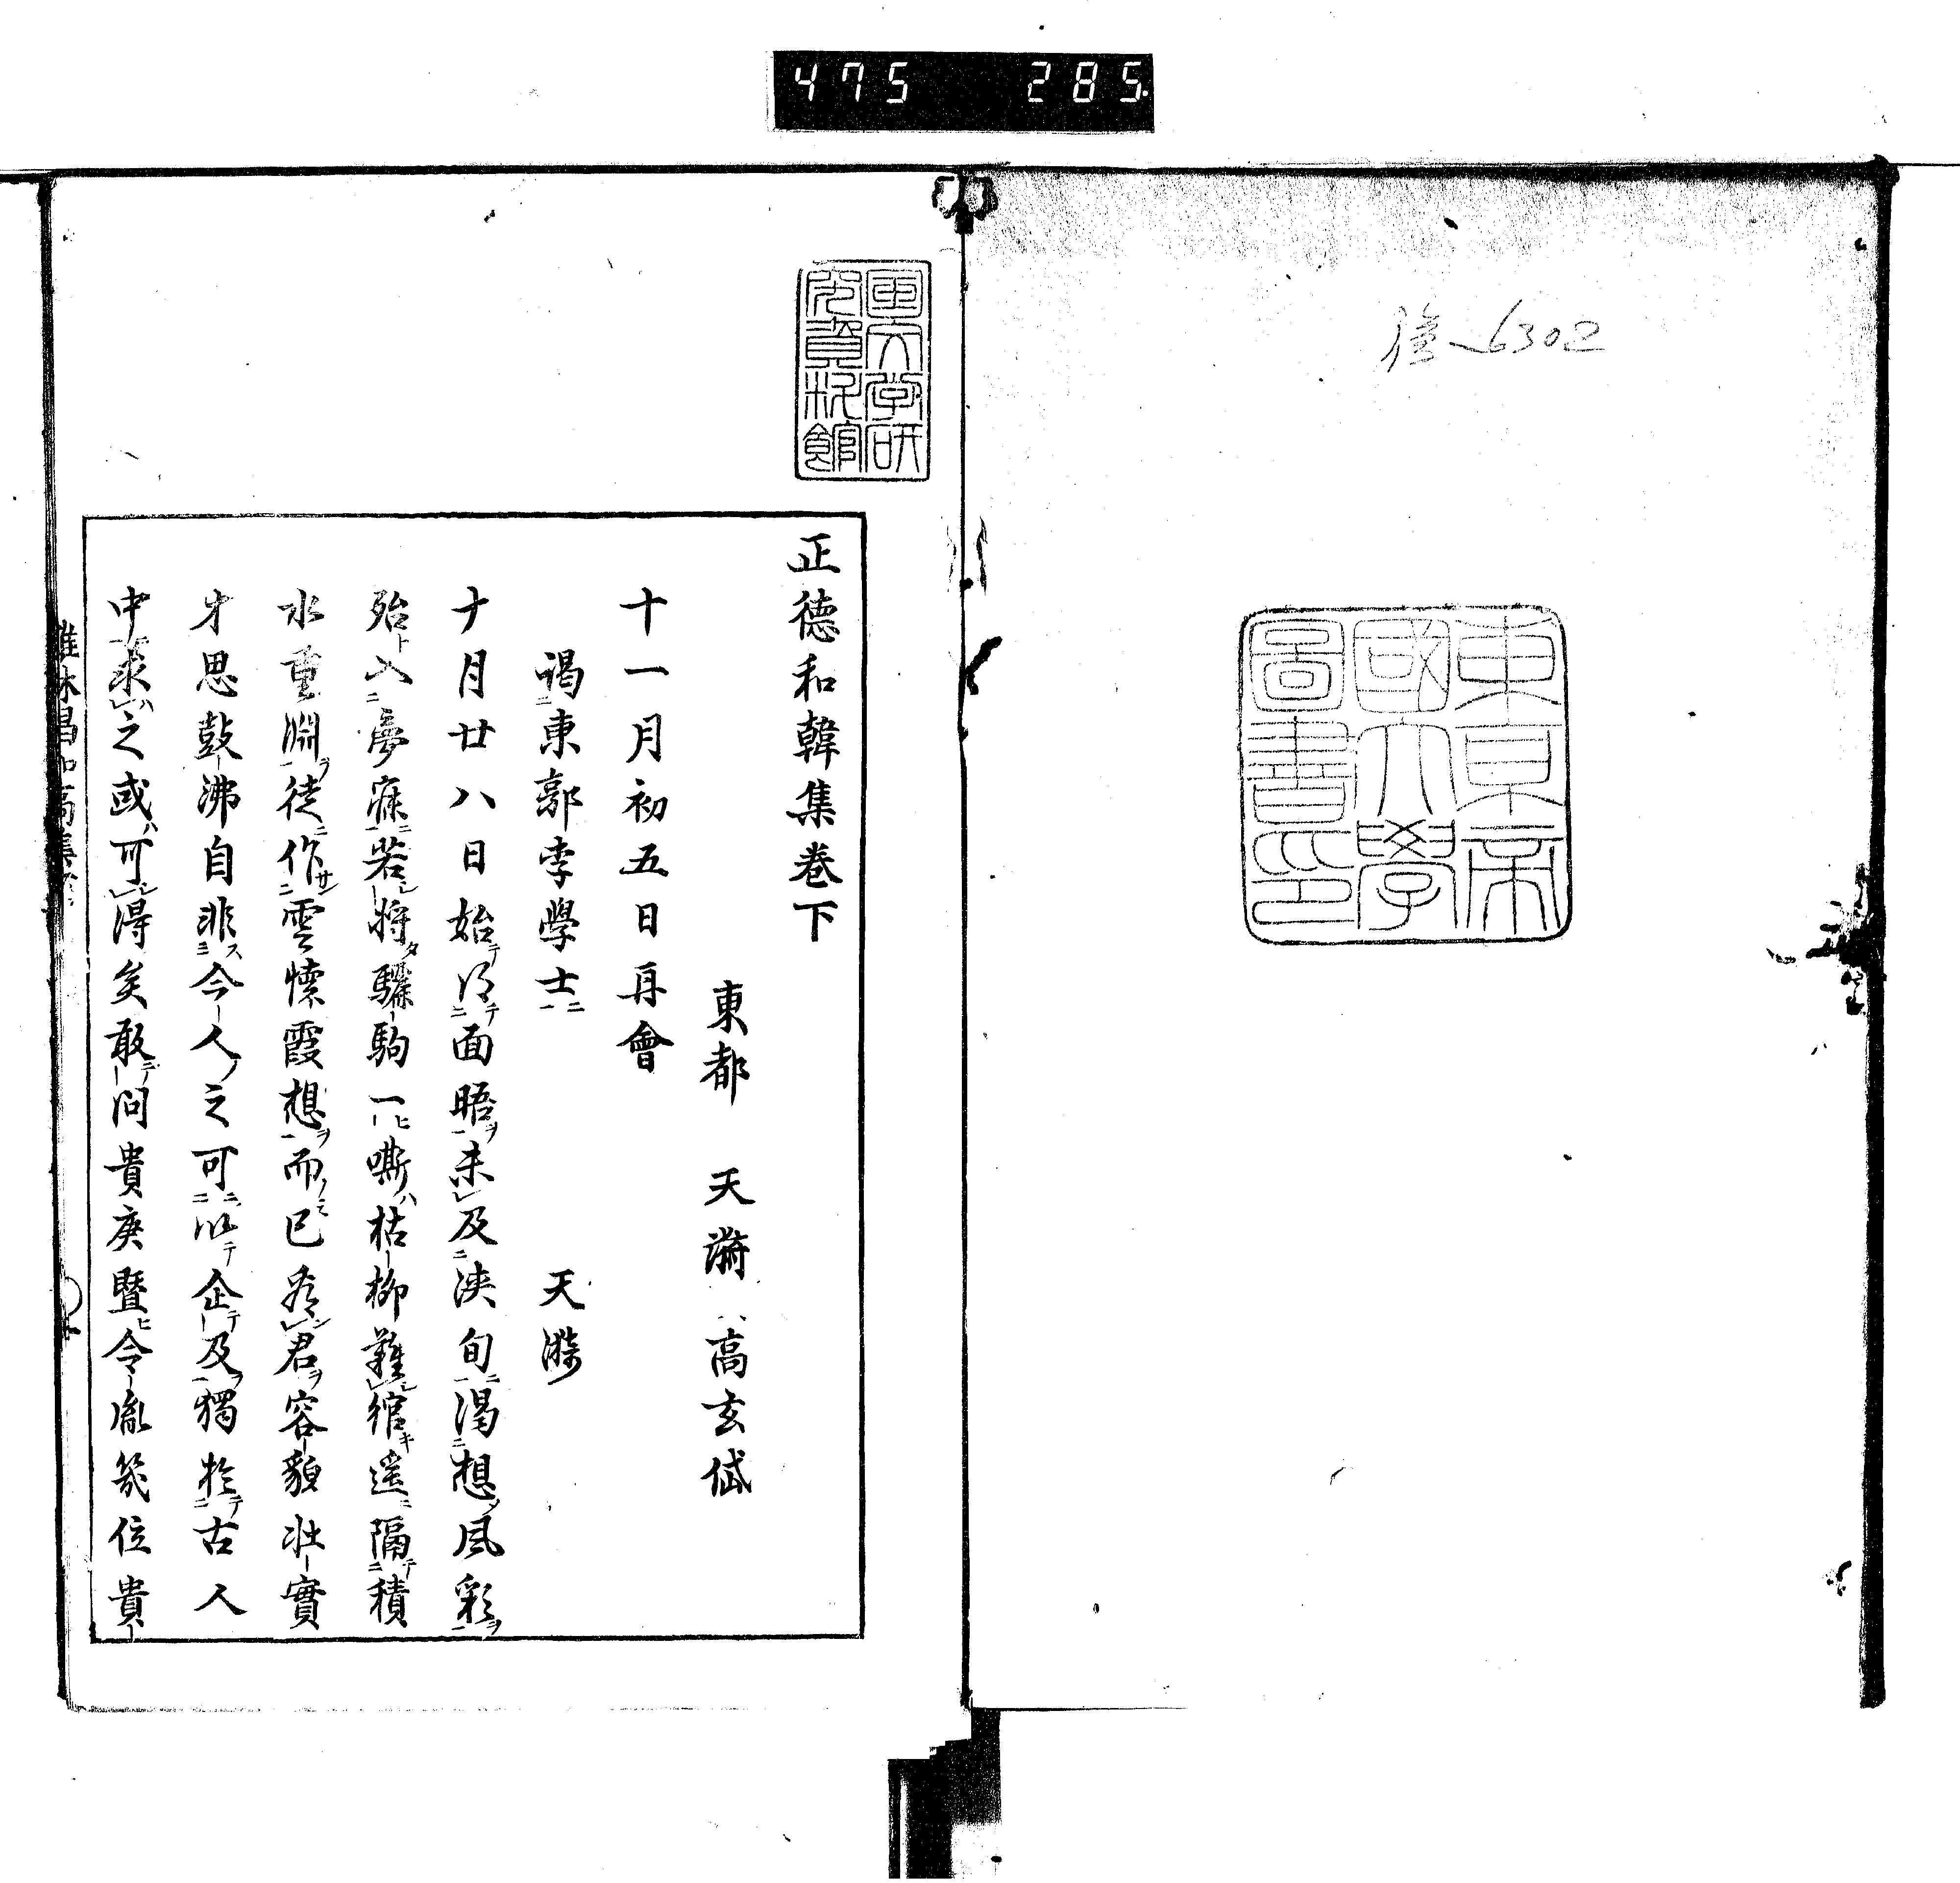 475 285
6302
東京帝
國大學
圖書印
国文学研
究資料館
正德和韓集卷下
東都 天漪 高玄岱
十一月初五日再會
謁東郭李學士 天漪
十月廿八日始得面晤未及浹旬渴想風彩
殆入夢寐若將驪駒一嘶枯柳難綰遙隔積
水重淵徒作雲懐霞想而已看君容貌壯實
才思鼓沸自非今人之可以企及獨於古人
中求之或可得矣敢問貴庚暨令胤幾位貴